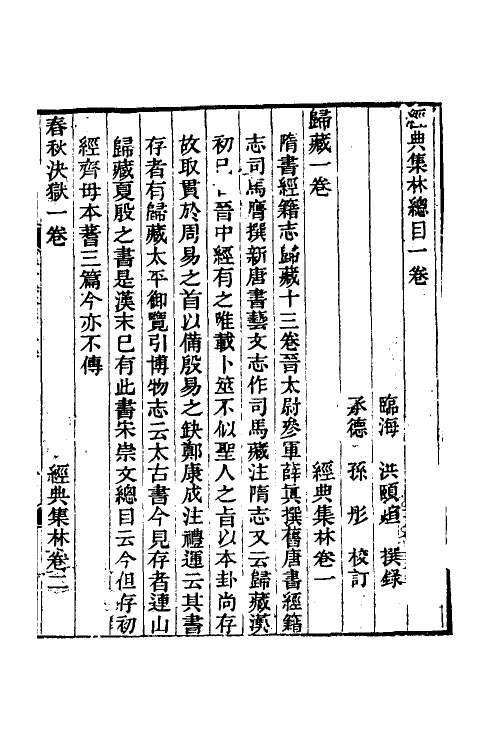 經典集林總目一卷
臨海 洪頤煊 撰錄
承德 孫彤 校訂
歸藏一卷 經典集林卷一
隋書經籍志歸藏十三卷晉太尉參軍薛眞撰舊唐書經籍
志司馬膺撰新唐書藝文志作司馬藏注隋志又云歸藏漢
初已 晉中經有之唯載卜筮不似聖人之旨以本卦尚存
故取貫於周易之首以備殷易之缺鄭康成注禮運云其書
存者有歸藏太平御覽引博物志云太古書今見存者連山
歸藏夏殷之書是漢末已有此書宋崇文總目云今但存初
經齊毋本蓍三篇今亦不傳
春秋決獄一卷 經典集林卷二